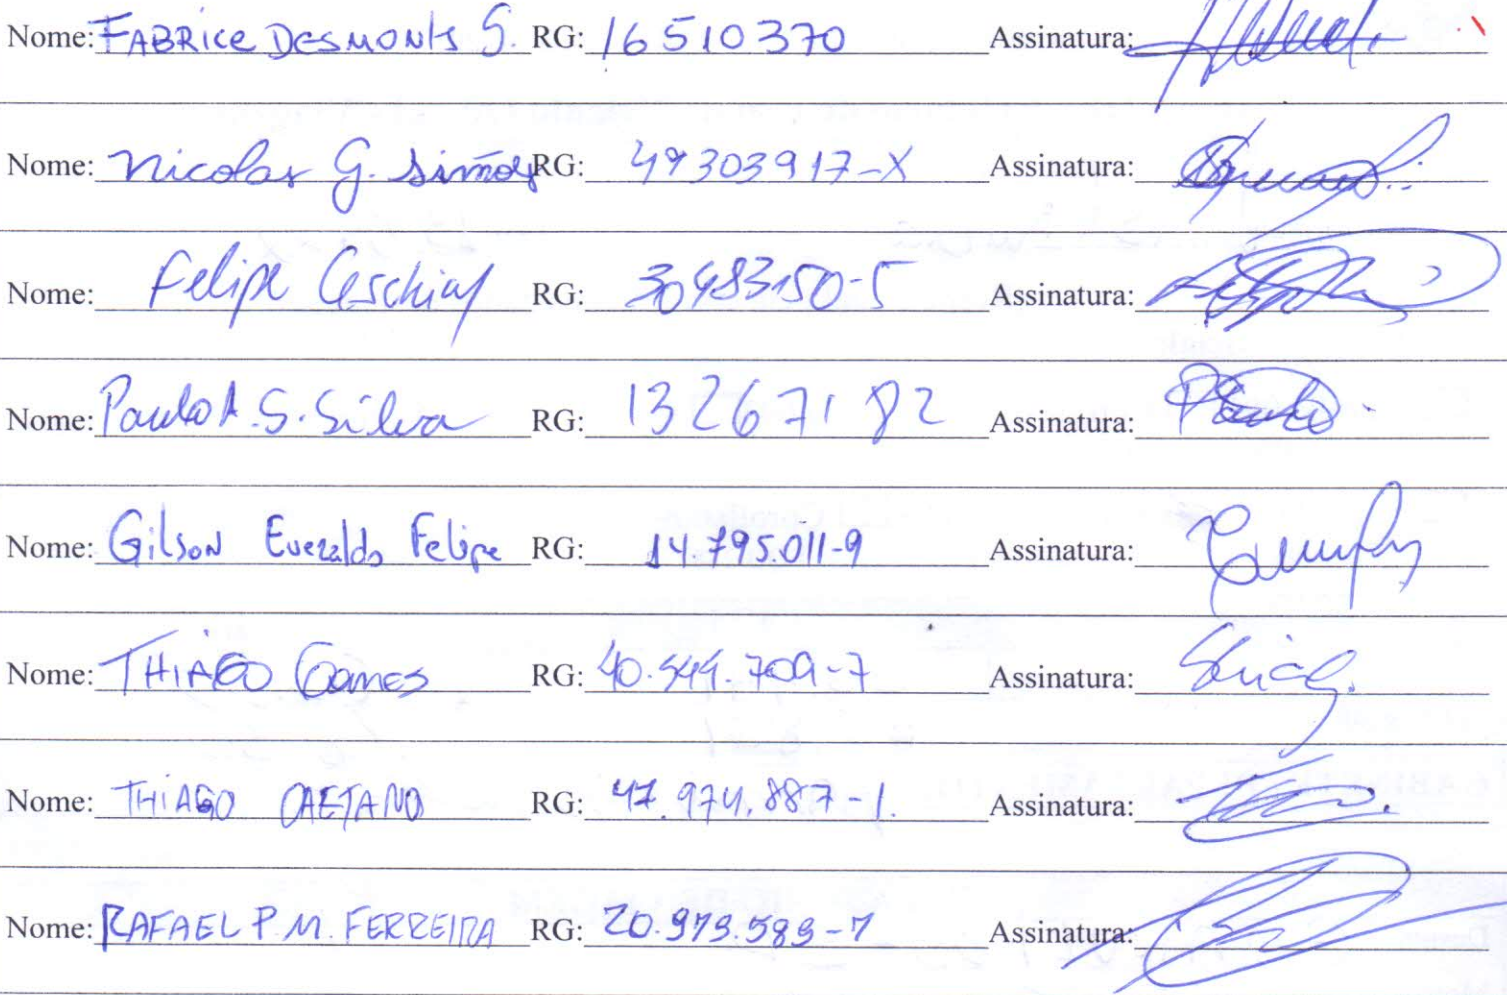 Nome: FABRICE DESMONTS S. RG: 16510370 Assinatura:
Nome: Nicolas G. Simões RG: 49303917-X Assinatura:
Nome: Felipe RG: 30483150-5 Assinatura:
Nome: Paulo A. S. Silva RG: 13267182 Assinatura: Paulo
Nome: Gilson Everaldo Felipe RG: 14.795.011-9 Assinatura:
Nome: THIAGO GOMES RG: Assinatura:
Nome: THIAGO CAETANO RG: 47.974.887-1. Assinatura:
Nome: RAFAEL P. M. FERREIRA RG: 20.979.589-7 Assinatura: